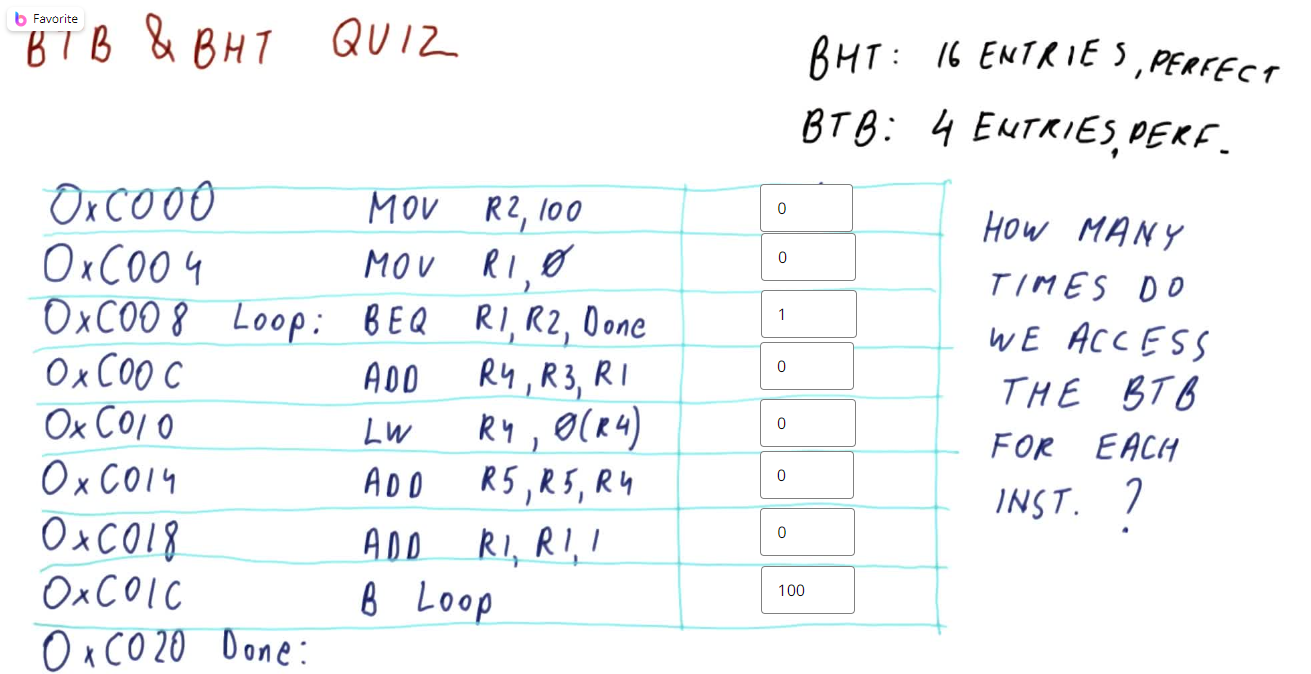 Favorite
BTB & BHT QUIZ
BHT: 16 ENTRIES, PERFECT
BTB: 4 ENTRIES, PERF.
0xC000 MOV R2, 100 0
0xC004 MOV R1, 0 0
0xC008 Loop: BEQ R1, R2, Done 1
0xC00C ADD R4, R3, R1 0
0xC010 LW R4, 0(R4) 0
0xC014 ADD R5, R5, R4 0
0xC018 ADD R1, R1, 1 0
0xC01C B Loop 100
0xC020 Done:
HOW MANY
TIMES DO
WE ACCESS
THE BTB
FOR EACH
INST. ?